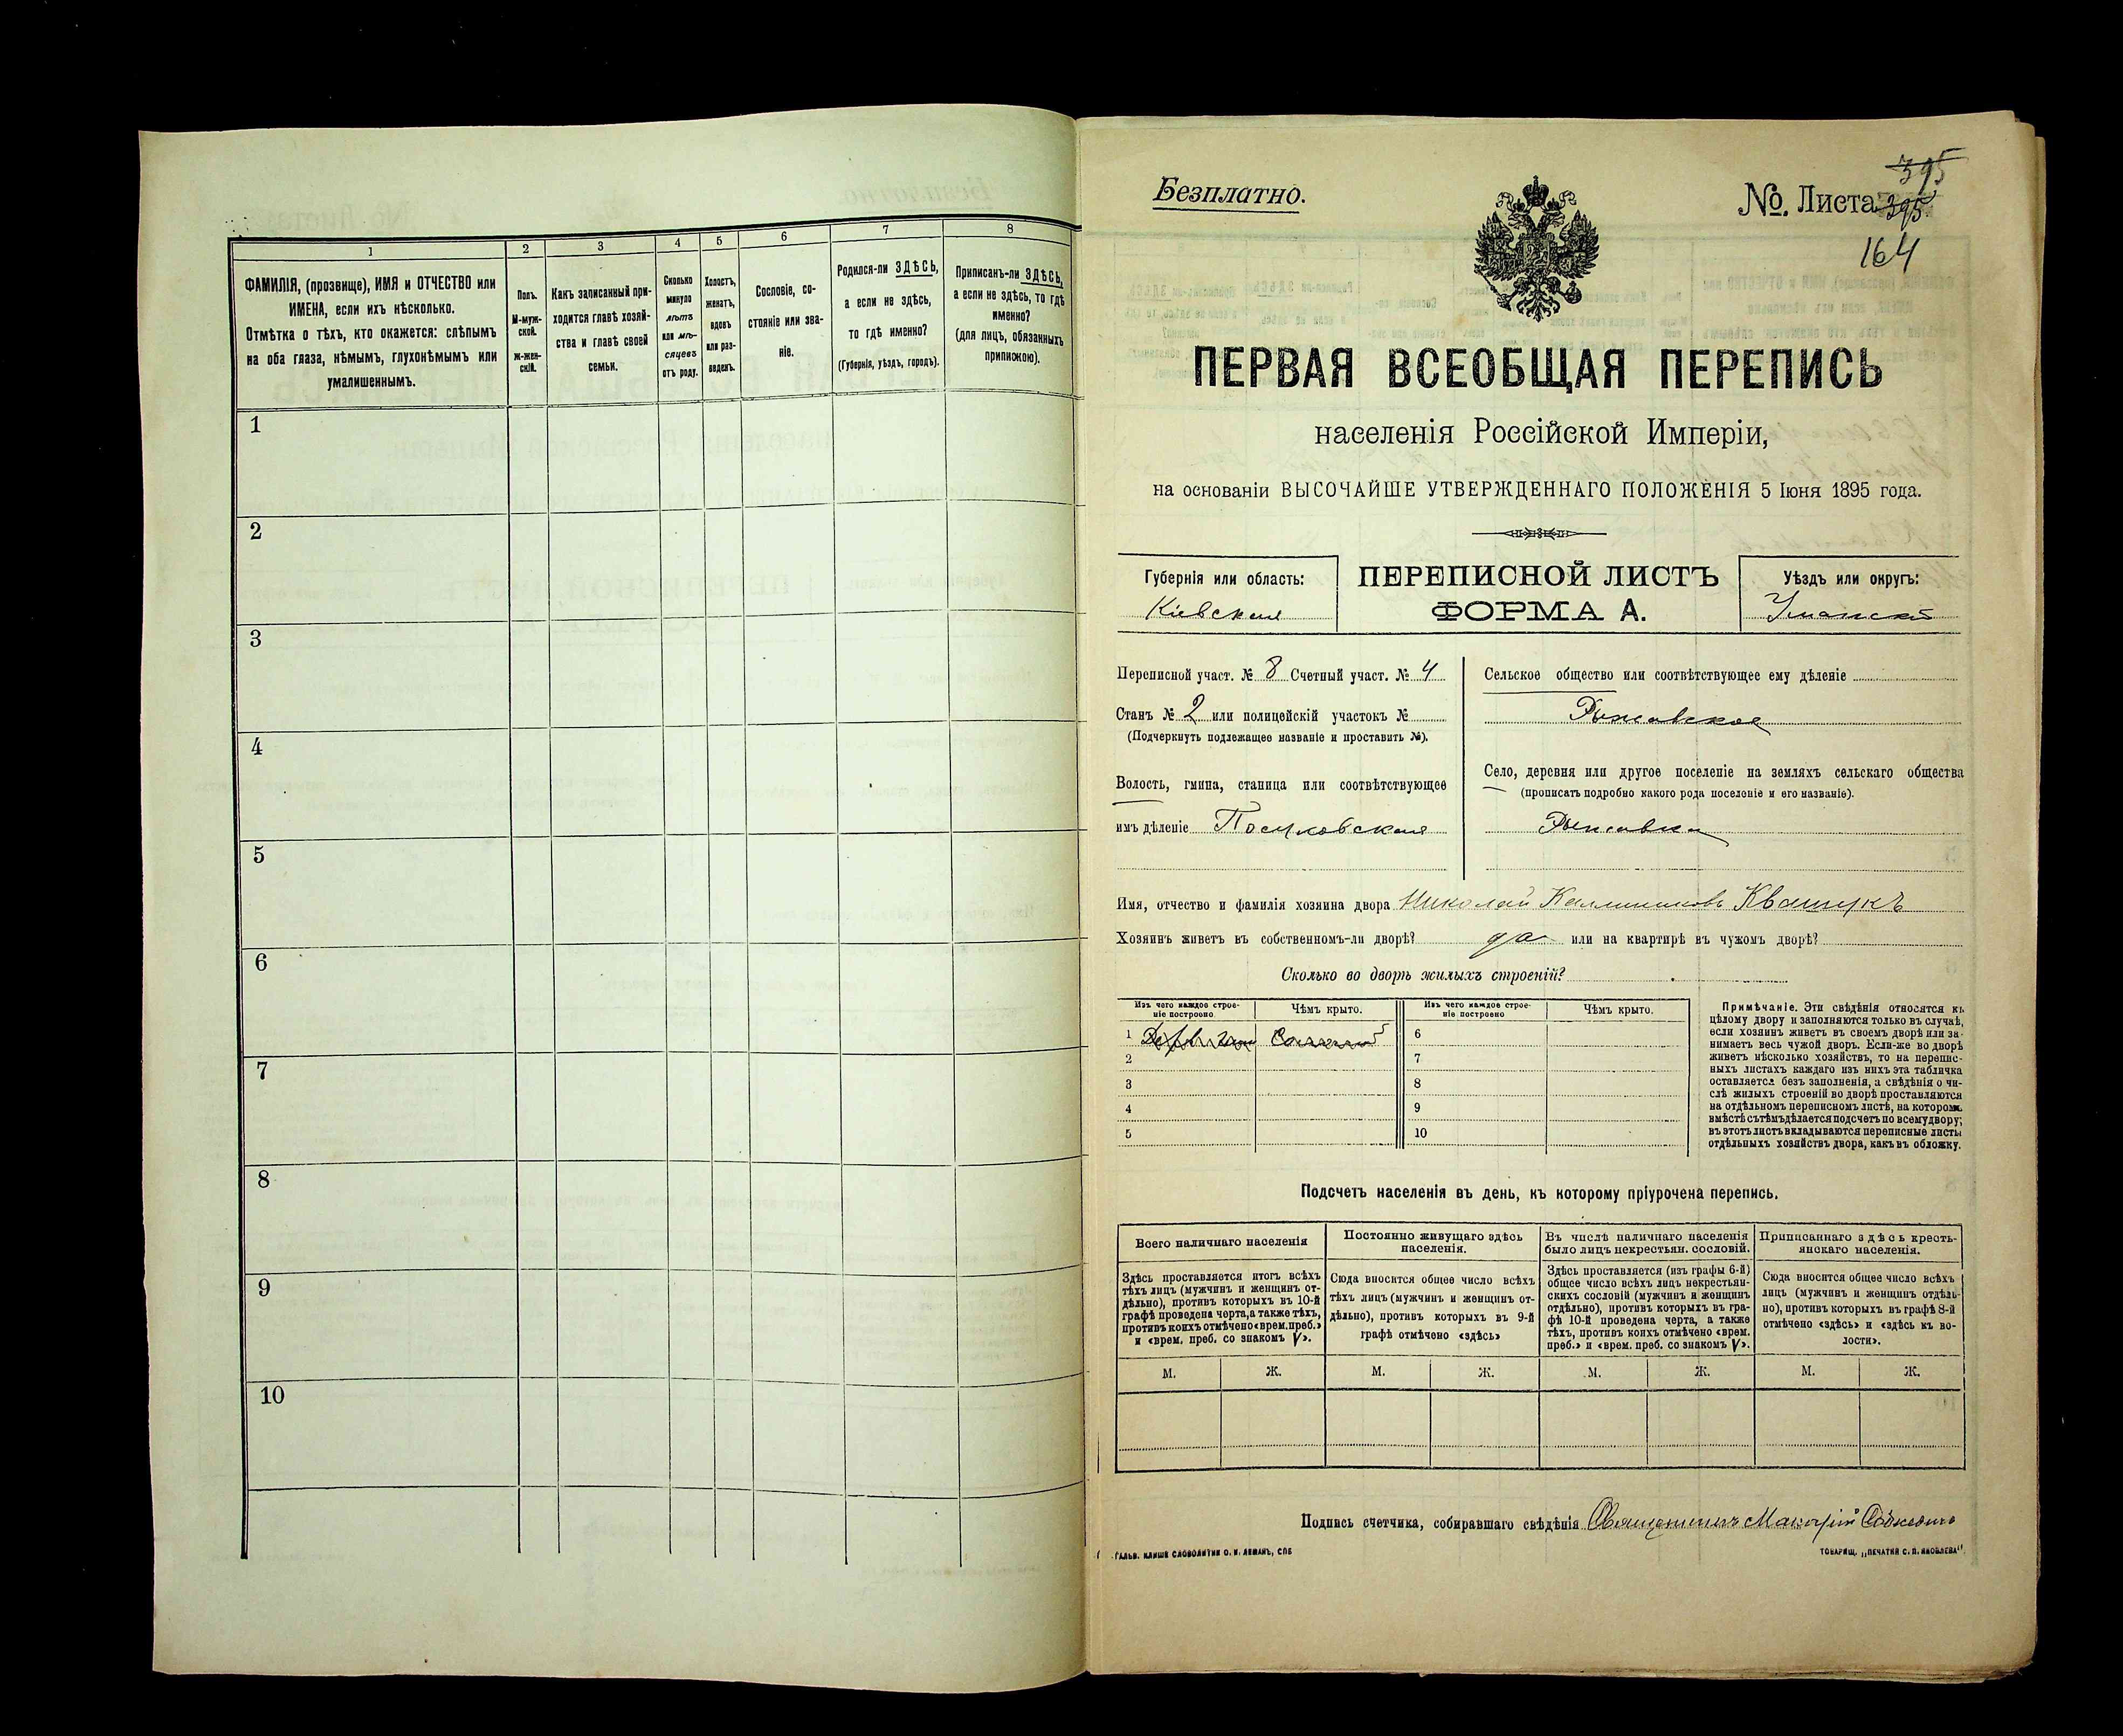 1
2
3
4
5
6
7
8
ФАМИЛІЯ, (прозвище), ИМЯ и ОТЧЕСТВО или
ИМЕНА, если ихъ нѣсколько.
Отмѣтка о тѣхъ, кто окажется: слѣпымъ
на оба глаза, нѣмымъ, глухонѣмымъ или
умалишеннымъ.
Полъ.
М-муж-
ской.
Ж-жен-
скій.
Какъ записанный при-
ходится главѣ хозяй-
ства и главѣ своей
семьи.
Сколько
минуло
лѣтъ
или мѣ-
сяцевъ
отъ роду.
Холостъ,
женатъ,
вдовъ
или раз-
веденъ.
Сословіе, со-
стояніе или зва-
ніе.
Родился-ли ЗДѢСЬ,
а если не здѣсь,
то гдѣ именно?
(Губернія, уѣздъ, городъ).
Приписанъ-ли ЗДѢСЬ,
а если не здѣсь, то гдѣ
именно?
(для лицъ, обязанныхъ
припискою).
1
2
3
4
5
6
7
8
9
10
395
Безплатно.
№. Листа 395
164
ПЕРВАЯ ВСЕОБЩАЯ ПЕРЕПИСЬ
населенія Россійской Имперіи,
на основаніи ВЫСОЧАЙШЕ УТВЕРЖДЕННАГО ПОЛОЖЕНІЯ 5 Іюня 1895 года.
Губернія или область:
Кіевская
ПЕРЕПИСНОЙ ЛИСТЪ
ФОРМА А.
Уѣздъ или округъ:
Уманскій
Переписной участ. № 8 Счетный участ. № 4
Станъ № 2 или полицейскій участокъ №
(Подчеркнуть подлежащее названіе и проставить №).
Волость, гмина, станица или соотвѣтствующее
имъ дѣленіе Посуховская
Сельское общество или соотвѣтствующее ему дѣленіе
Рыжавское
Село, деревня или другое поселеніе на земляхъ сельскаго общества
(прописать подробно какого рода поселеніе и его названіе).
Рыжавка
Имя, отчество и фамилія хозяина двора Николай Каллиниковъ Квашукъ
Хозяинъ живетъ въ собственномъ-ли дворѣ? да или на квартирѣ въ чужомъ дворѣ?
Сколько во дворѣ жилыхъ строеній?
Изъ чего каждое строе-
ніе построено.
Чѣмъ крыто.
Изъ чего каждое строе-
ніе построено
Чѣмъ крыто.
1
2
3
4
5
6
7
8
9
10
Примѣчаніе. Эти свѣдѣнія относятся къ
цѣлому двору и заполняются только въ случаѣ,
если хозяинъ живетъ въ своемъ дворѣ или за-
нимаетъ весь чужой дворъ. Если-же во дворѣ
живетъ нѣсколько хозяйствъ, то на перепис-
ныхъ листахъ каждаго изъ нихъ эта табличка
оставляется безъ заполненія, а свѣдѣнія о чи-
слѣ жилыхъ строеній во дворѣ проставляются
на отдѣльномъ переписномъ листѣ, на которомъ
вмѣстѣ съ тѣмъ дѣлается подсчетъ по всему двору;
въ этотъ листъ вкладываются переписные листы
отдѣльныхъ хозяйствъ двора, какъ въ обложку.
Подсчетъ населенія въ день, къ которому пріурочена перепись.
Всего наличнаго населенія
Постоянно живущаго здѣсь
населенія.
Въ числѣ наличнаго населенія
было лицъ некрестьян. сословій.
Приписаннаго здѣсь кресть-
янскаго населенія.
Здѣсь проставляется итогъ всѣхъ
тѣхъ лицъ (мужчинъ и женщинъ от-
дѣльно), противъ которыхъ въ 10-й
графѣ проведена черта, а также тѣхъ,
противъ коихъ отмѣчено «врем. преб.»
и «врем. преб. со знакомъ V».
Сюда вносится общее число всѣхъ
тѣхъ лицъ (мужчинъ и женщинъ от-
дѣльно), противъ которыхъ въ 9-й
графѣ отмѣчено «здѣсь»
Здѣсь проставляется (изъ графы 6-й)
общее число всѣхъ лицъ некрестьян-
скихъ сословій (мужчинъ и женщинъ
отдѣльно), противъ которыхъ въ гра-
фѣ 10-й проведена черта, а также
тѣхъ, противъ коихъ отмѣчено «врем.
преб.» и «врем. преб. со знакомъ V».
Сюда вносится общее число всѣхъ
лицъ (мужчинъ и женщинъ отдѣль-
но), противъ которыхъ въ графѣ 8-й
отмѣчено «здѣсь» и «здѣсь къ во-
лости».
М.
Ж.
М.
Ж.
М.
Ж.
М.
Ж.
Подпись счетчика, собиравшаго свѣдѣнія Священникъ Макарій
ГАЛЬВ. КЛИШЕ СЛОВОЛИТНИ О. И. ЛЕМАНЪ, СПБ
ТОВАРИЩ. „ПЕЧАТНЯ С. П. ЯКОВЛЕВА“